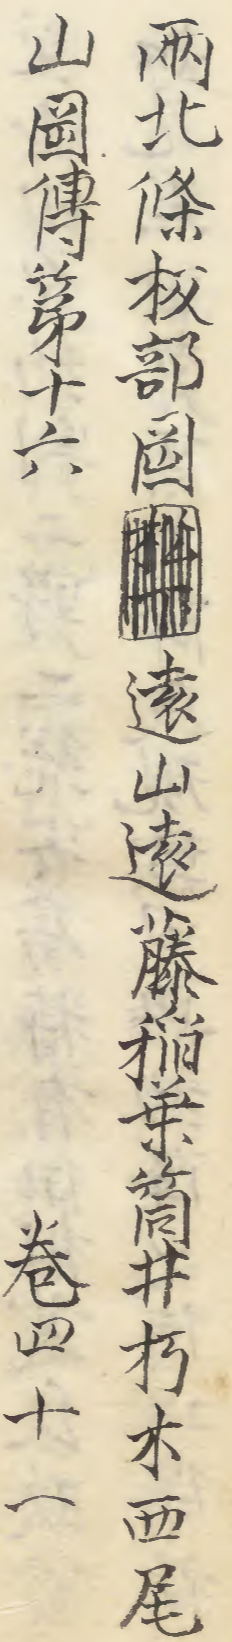 兩北條板部岡遠山遠藤稻葉筒井朽木西尾
山岡傳第十六　卷四十一